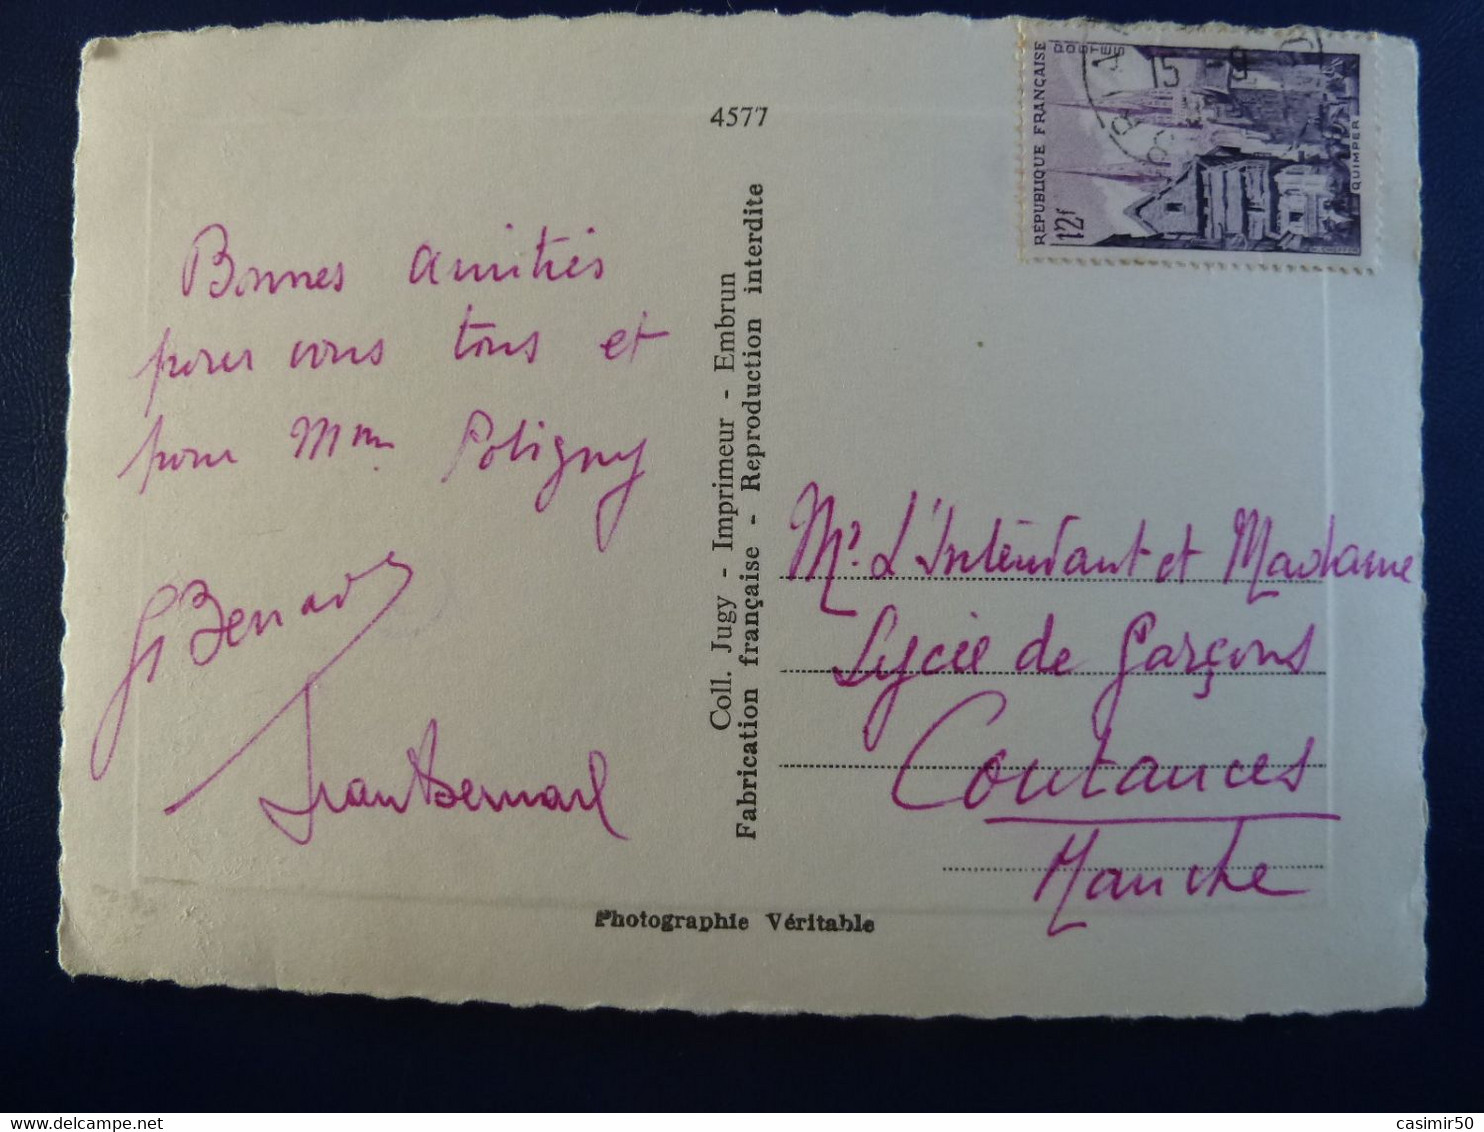 4577
Bonnes amitiés
pour vous tous et
pour Mme Poligny
G Bernard
Jean Bernard
Coll. Jugy - Imprimeur - Embrun
Fabrication française - Reproduction interdite
RÉPUBLIQUE FRANÇAISE
POSTES
12f
QUIMPER
15 - 9
Mr. L'Intendant et Madame
Lycée de Garçons
Coutances
Manche
Photographie Véritable
casimir50